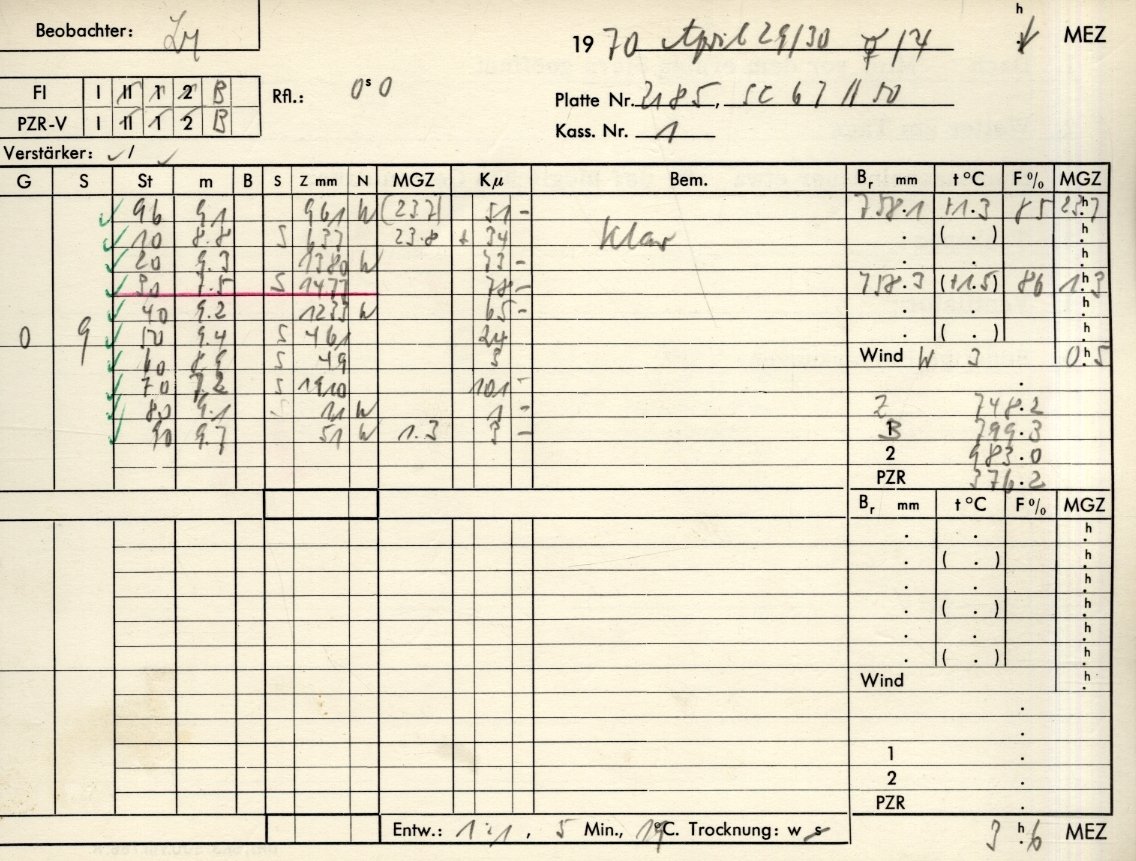 Beobachter:
1970 April 29/30 h MEZ
FI I II 1 2 B Rfl.: 0ˢ0
Platte Nr. 2185,
PZR-V I II 1 2 B
Kass. Nr. 1
Verstärker: ✓ / ✓
G S St m B S Z mm N MGZ Kμ Bem. Bᵣ mm t °C F % MGZ
96 9.1 961 W (23.7) 51 - 758.1 +1.3 85 23ʰ7
10 8.8 S 637 23.8 + 34 Klar ( . ) h
20 9.3 1380 W 73 - . h
30 7.5 S 1477 78 - 758.3 (+1.5) 86 1ʰ3
40 9.2 1233 W 65 - . h
0 9 50 9.4 S 461 24 ( . ) h
60 8.9 S 49 3 Wind W 3 0ʰ5
70 7.2 S 1910 101 - .
80 9.1 S 21 W 1 - Z 748.2
90 9.7 51 W 1.3 3 - B 799.3
2 983.0
PZR 376.2
Bᵣ mm t °C F % MGZ
. . h
. ( . ) h
. . h
. ( . ) h
. . h
. ( . ) h
Wind h
.
.
1 .
2 .
PZR .
Entw.: 1:1, 5 Min., 19°C. Trocknung: w s 3ʰ6 MEZ